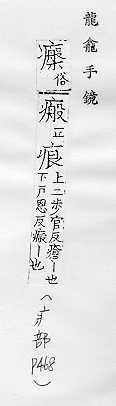 龍龕手鏡
俗瘢正痕上二步官反瘡—也下戶恩反瘢—也(疒部P468)